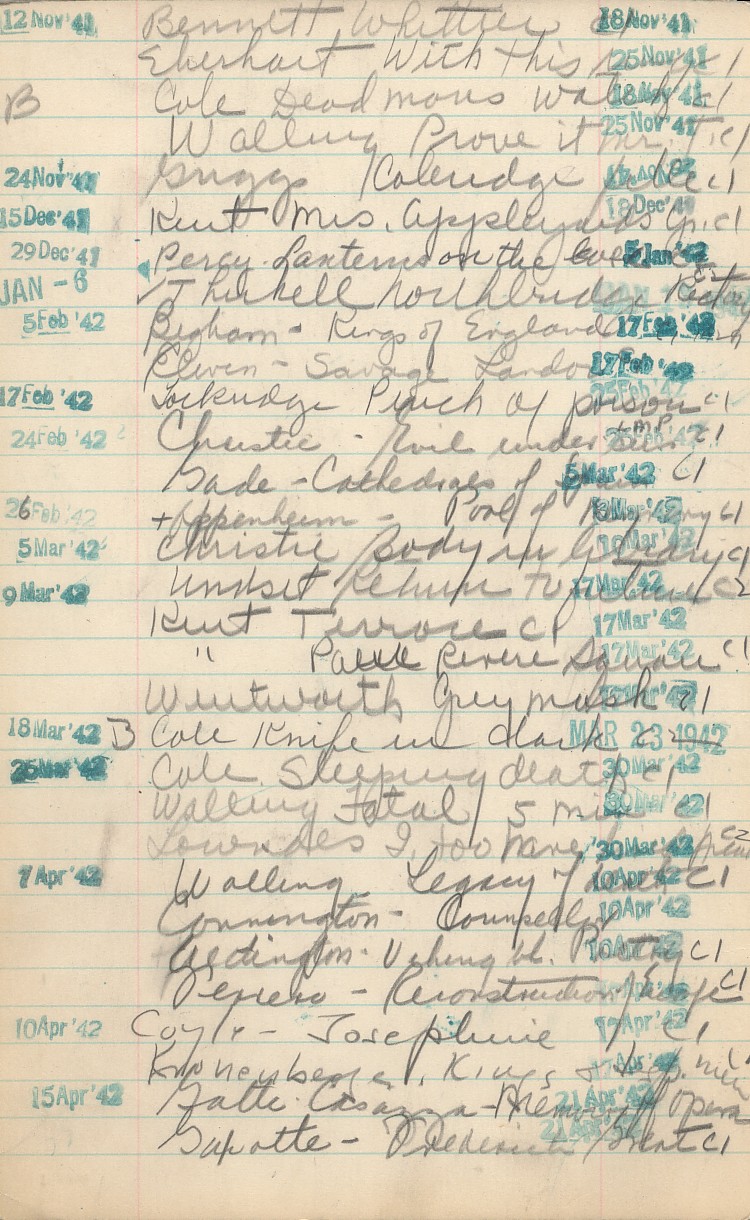 12 Nov '41 Bennett Whittier c1 18 Nov '41
Eberhart With this c1 25 Nov '41
B Cole Dead mans watch c1 18 Nov '41
Walling Prove it Mr. T. c1 25 Nov '41
24 Nov '41 Griggs Coleridge c1
15 Dec '41 Kent Mrs. Appleyards c1 18 Dec '41
29 Dec '41 Percy Lanterns on the 5 Jan '42
JAN - 6 ✓ Northbridge Rectory
5 Feb '42 Bigham - Kings of England 17 Feb '42
Elwin - Savage Landor 17 Feb '42
17 Feb '42 Lockridge Pinch of poison c1 25 Feb '42
24 Feb '42 Christie - Evil under sun c1
Gade - Cathedrals of Spain 5 Mar '42 c1
26 Feb '42 + Oppenheim - Pool of Memory c1 3 Mar '42
5 Mar '42 Christie Body in library c1 10 Mar '42
9 Mar '42 Undset Return to future c2 17 Mar '42
Kent Terrace c1 17 Mar '42
" Paul Revere Square c1 17 Mar '42
Wentworth Grey mask c1
18 Mar '42 B Cole Knife in dark c2 MAR 23 1942
25 Mar '42 Cole Sleeping death c1 30 Mar '42
Walling Fatal 5 min c1 30 Mar '42
Lowndes I, too have c2 30 Mar '42
7 Apr '42 Walling Legacy of death c1 10 Apr '42
Connington - Counsellor 10 Apr '42
Aldington - Viking bk. Poetry c1 10 Apr '42
Ferrero - Reconstruction Europe c1
10 Apr '42 Coyle - Josephine c1 17 Apr '42
Kronenberger, Kings & desp. men c1 17 Apr '42
15 Apr '42 Gatti-Casazza - Memories Opera 21 Apr '42
Frederick c1 21 Apr '42